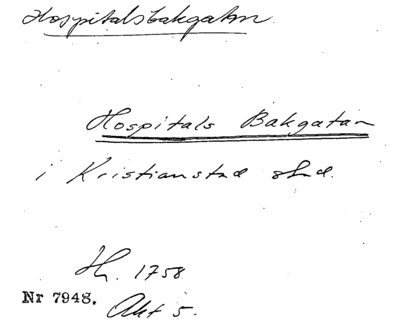 Hospitalsbakgatan.
Hospitals Bakgatan
i Kristianstad
H. 1758
Nr 7948.
Akt 5.